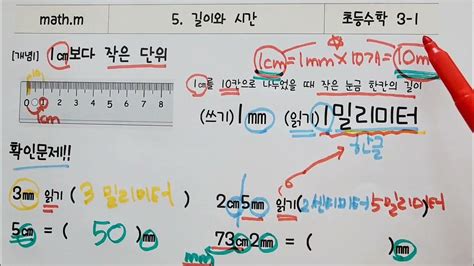 math.m 5. 길이와 시간 초등수학 3-1
[개념1] 1cm보다 작은 단위
1cm=1mm×10개=10m
1cm를 10칸으로 나누었을 때 작은 눈금 한칸의 길이
0 1 2 3 4 5 6 7 8
1cm
(쓰기) 1mm (읽기) 1 밀리미터
한글
확인문제!!
3mm 읽기 (3 밀리미터)
2cm5mm 읽기(2센티미터 5밀리미터)
5cm = ( 50 )mm
73cm2mm = ( )mm
mm